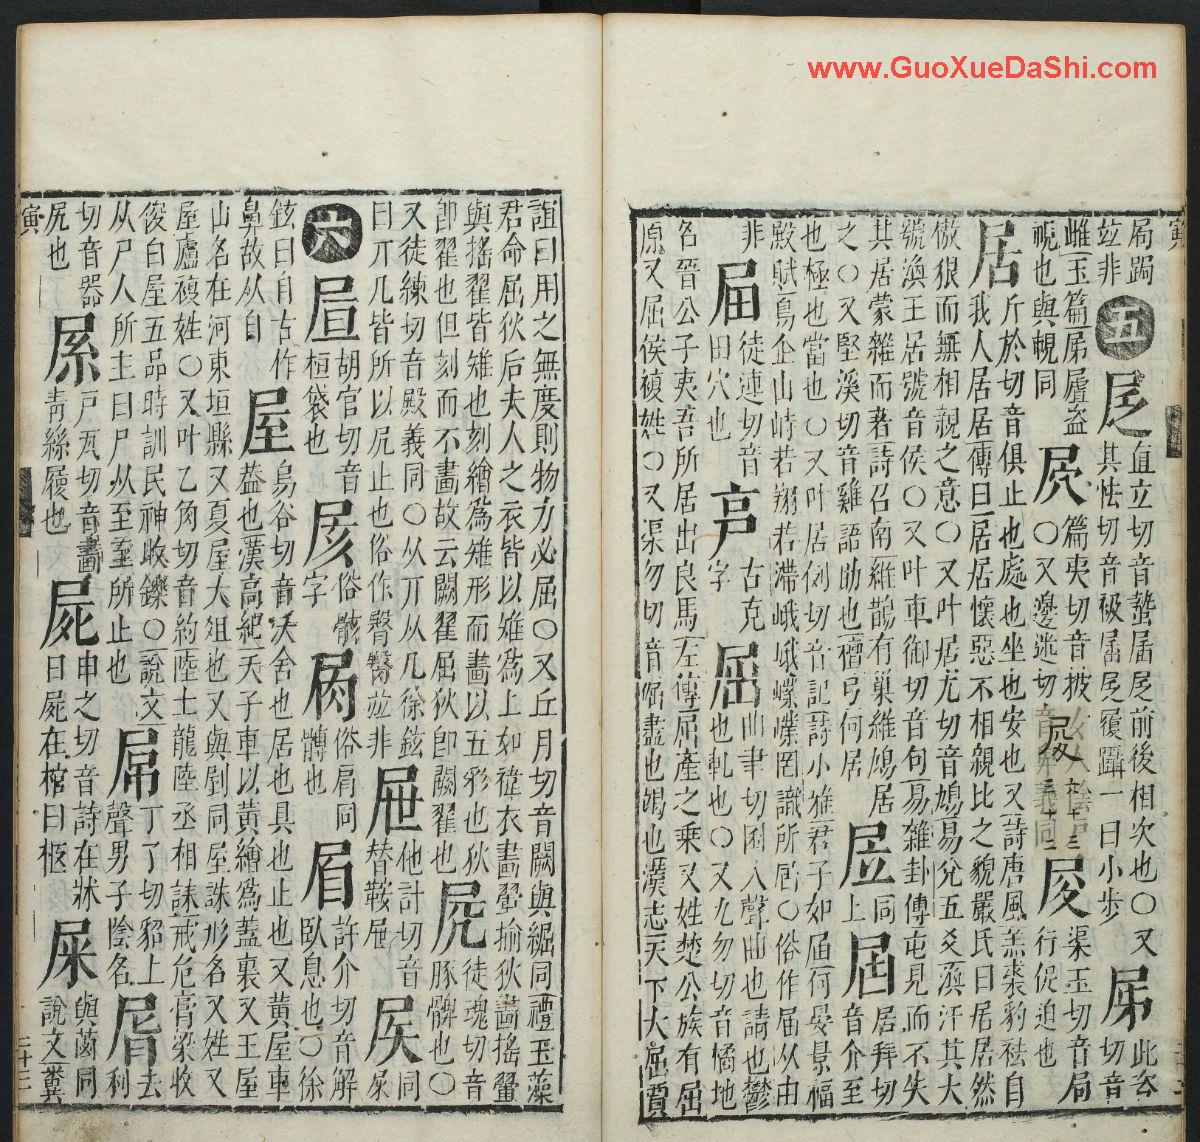 www.GuoXueDaShi.com
寅
局跼
竝非
五
𡰴直立切音蟄屠𡰴前後相次也○又
其怯切音𧙕屠𡰴履躡一曰小步
此㕣切音
雌玉篇㞖履盜
視也與覞同
篇夷切音披
○又邊迷切
渠玉切音局
行促迫也
居斤於切音俱止也處也坐也安也又詩唐風羔裘豹袪自
我人居居傳曰居居懷惡不相親比之貌嚴氏曰居居然
傲狠而無相親之意○又叶居尤切音鳩易兌五爻渙汗其大
號渙王居號音侯○又叶車御切音句易雜卦傳屯見而不失
其居蒙雜而著詩召南維鵲有巢維鳩居
之○又堅溪切音雞語助也禮弓何居
同上
居拜切音介至
也極也當也○又叶居例切音記詩小雅君子如屆何晏景福
殿賦鳥企山峙若翔若滯峨峨嶫嶫罔識所屆○俗作届从由
非
徒連切音
田穴也
古克字
屈曲聿切困入聲曲也請也鬱
也軋也○又九勿切音橘地
名晉公子夷吾所居出良馬左傳屈產之乘又姓楚公族有屈
原又屈侯複姓○又渠勿切音倔盡也竭也漢志天下大屈賈
誼曰用之無度則物力必屈○又丘月切音闕與緄同禮玉藻
君命屈狄后夫人之衣皆以雉爲上如褘衣畫翬揄狄畫搖翟
與搖翟皆雉也刻繒爲雉形而畫以五彩也狄
卽翟也但刻而不畫故云闕翟屈狄卽闕翟也
徒魂切音
豚髀也○
又徒練切音殿義同○从丌从几徐鉉
曰丌几皆所以凥止也俗作臀臋竝非
屜他計切音
替鞍屜
六
胡官切音
桓袋也
俗骸字
俗肩同
髆也
眉許介切音解
臥息也○徐
鉉曰自古作
鼻故从自
屋烏谷切音沃舍也居也具也止也又黃屋車
蓋也漢高紀天子車以黃繒爲蓋裏又王屋
山名在河東垣縣又夏屋大俎也又與剭同屋誅形名又姓又
屋廬複姓○又叶乙角切音約陸士龍陸丞相誄戒危膏粱收
俊白屋五品時訓民神收鑠○說文
从尸人所主曰尸从至至所止也
屌丁了切貂上
聲男子陰名
屑
切音器
凥也
戸瓦切音畫
青絲履也
屍申之切音詩在牀
曰屍在棺曰柩
屎與菌同
說文糞
寅
二十三